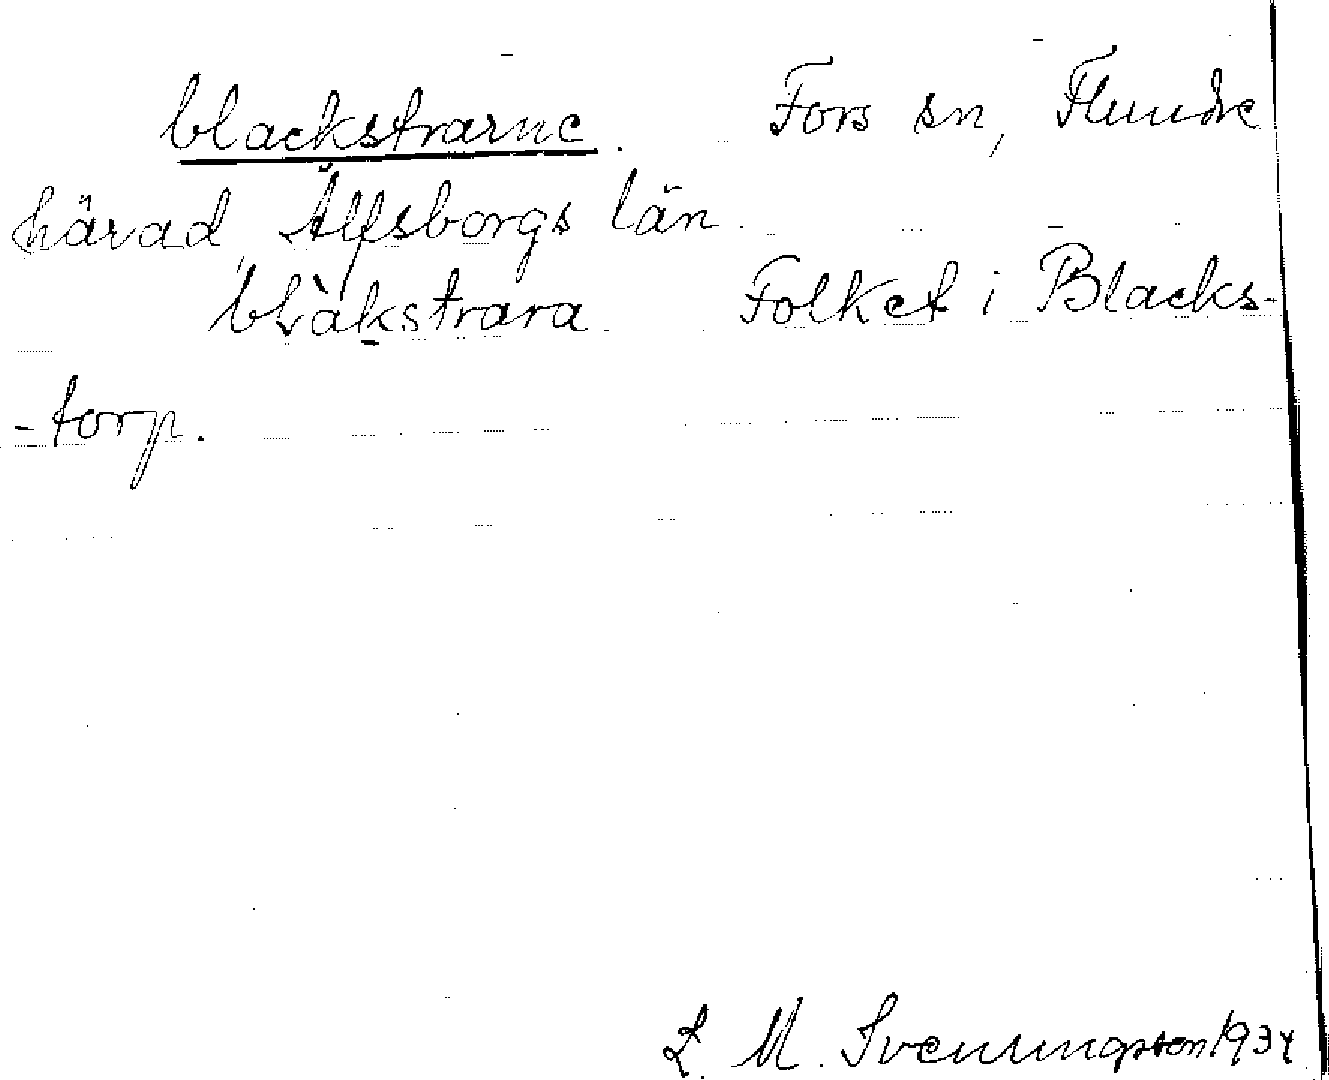 blackstrarne. Fors sn, Flundre
härad Älfsborgs län.
blàkstrara. Folket i Blacks-
-torp.
L. M. Svenungsson 1934